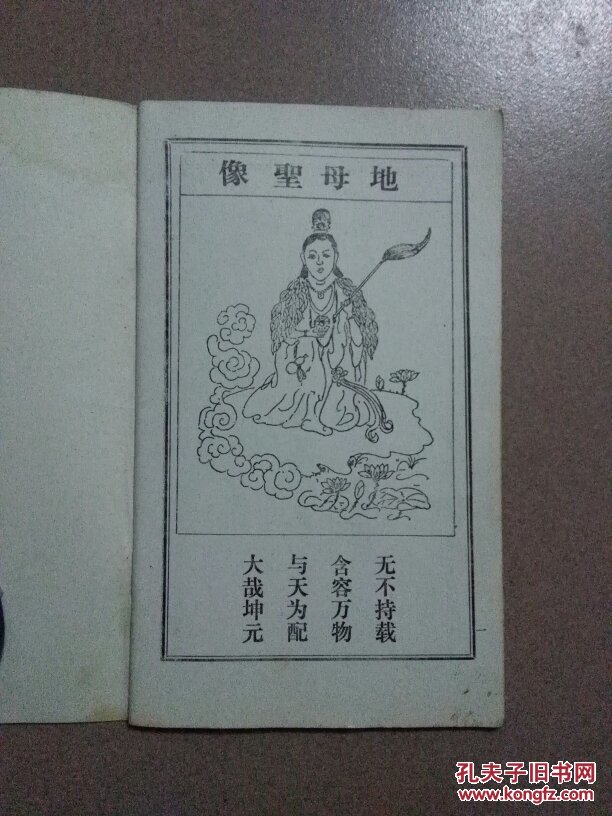 地母聖像
无不持载
含容万物
与天为配
大哉坤元
孔夫子旧书网
www.kongfz.com